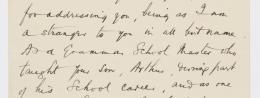 for addressing you, being as I am
a stranger to you in all but name.
As a Grammar School Master who
taught your son, Arthur, during part
of his School career, and as one